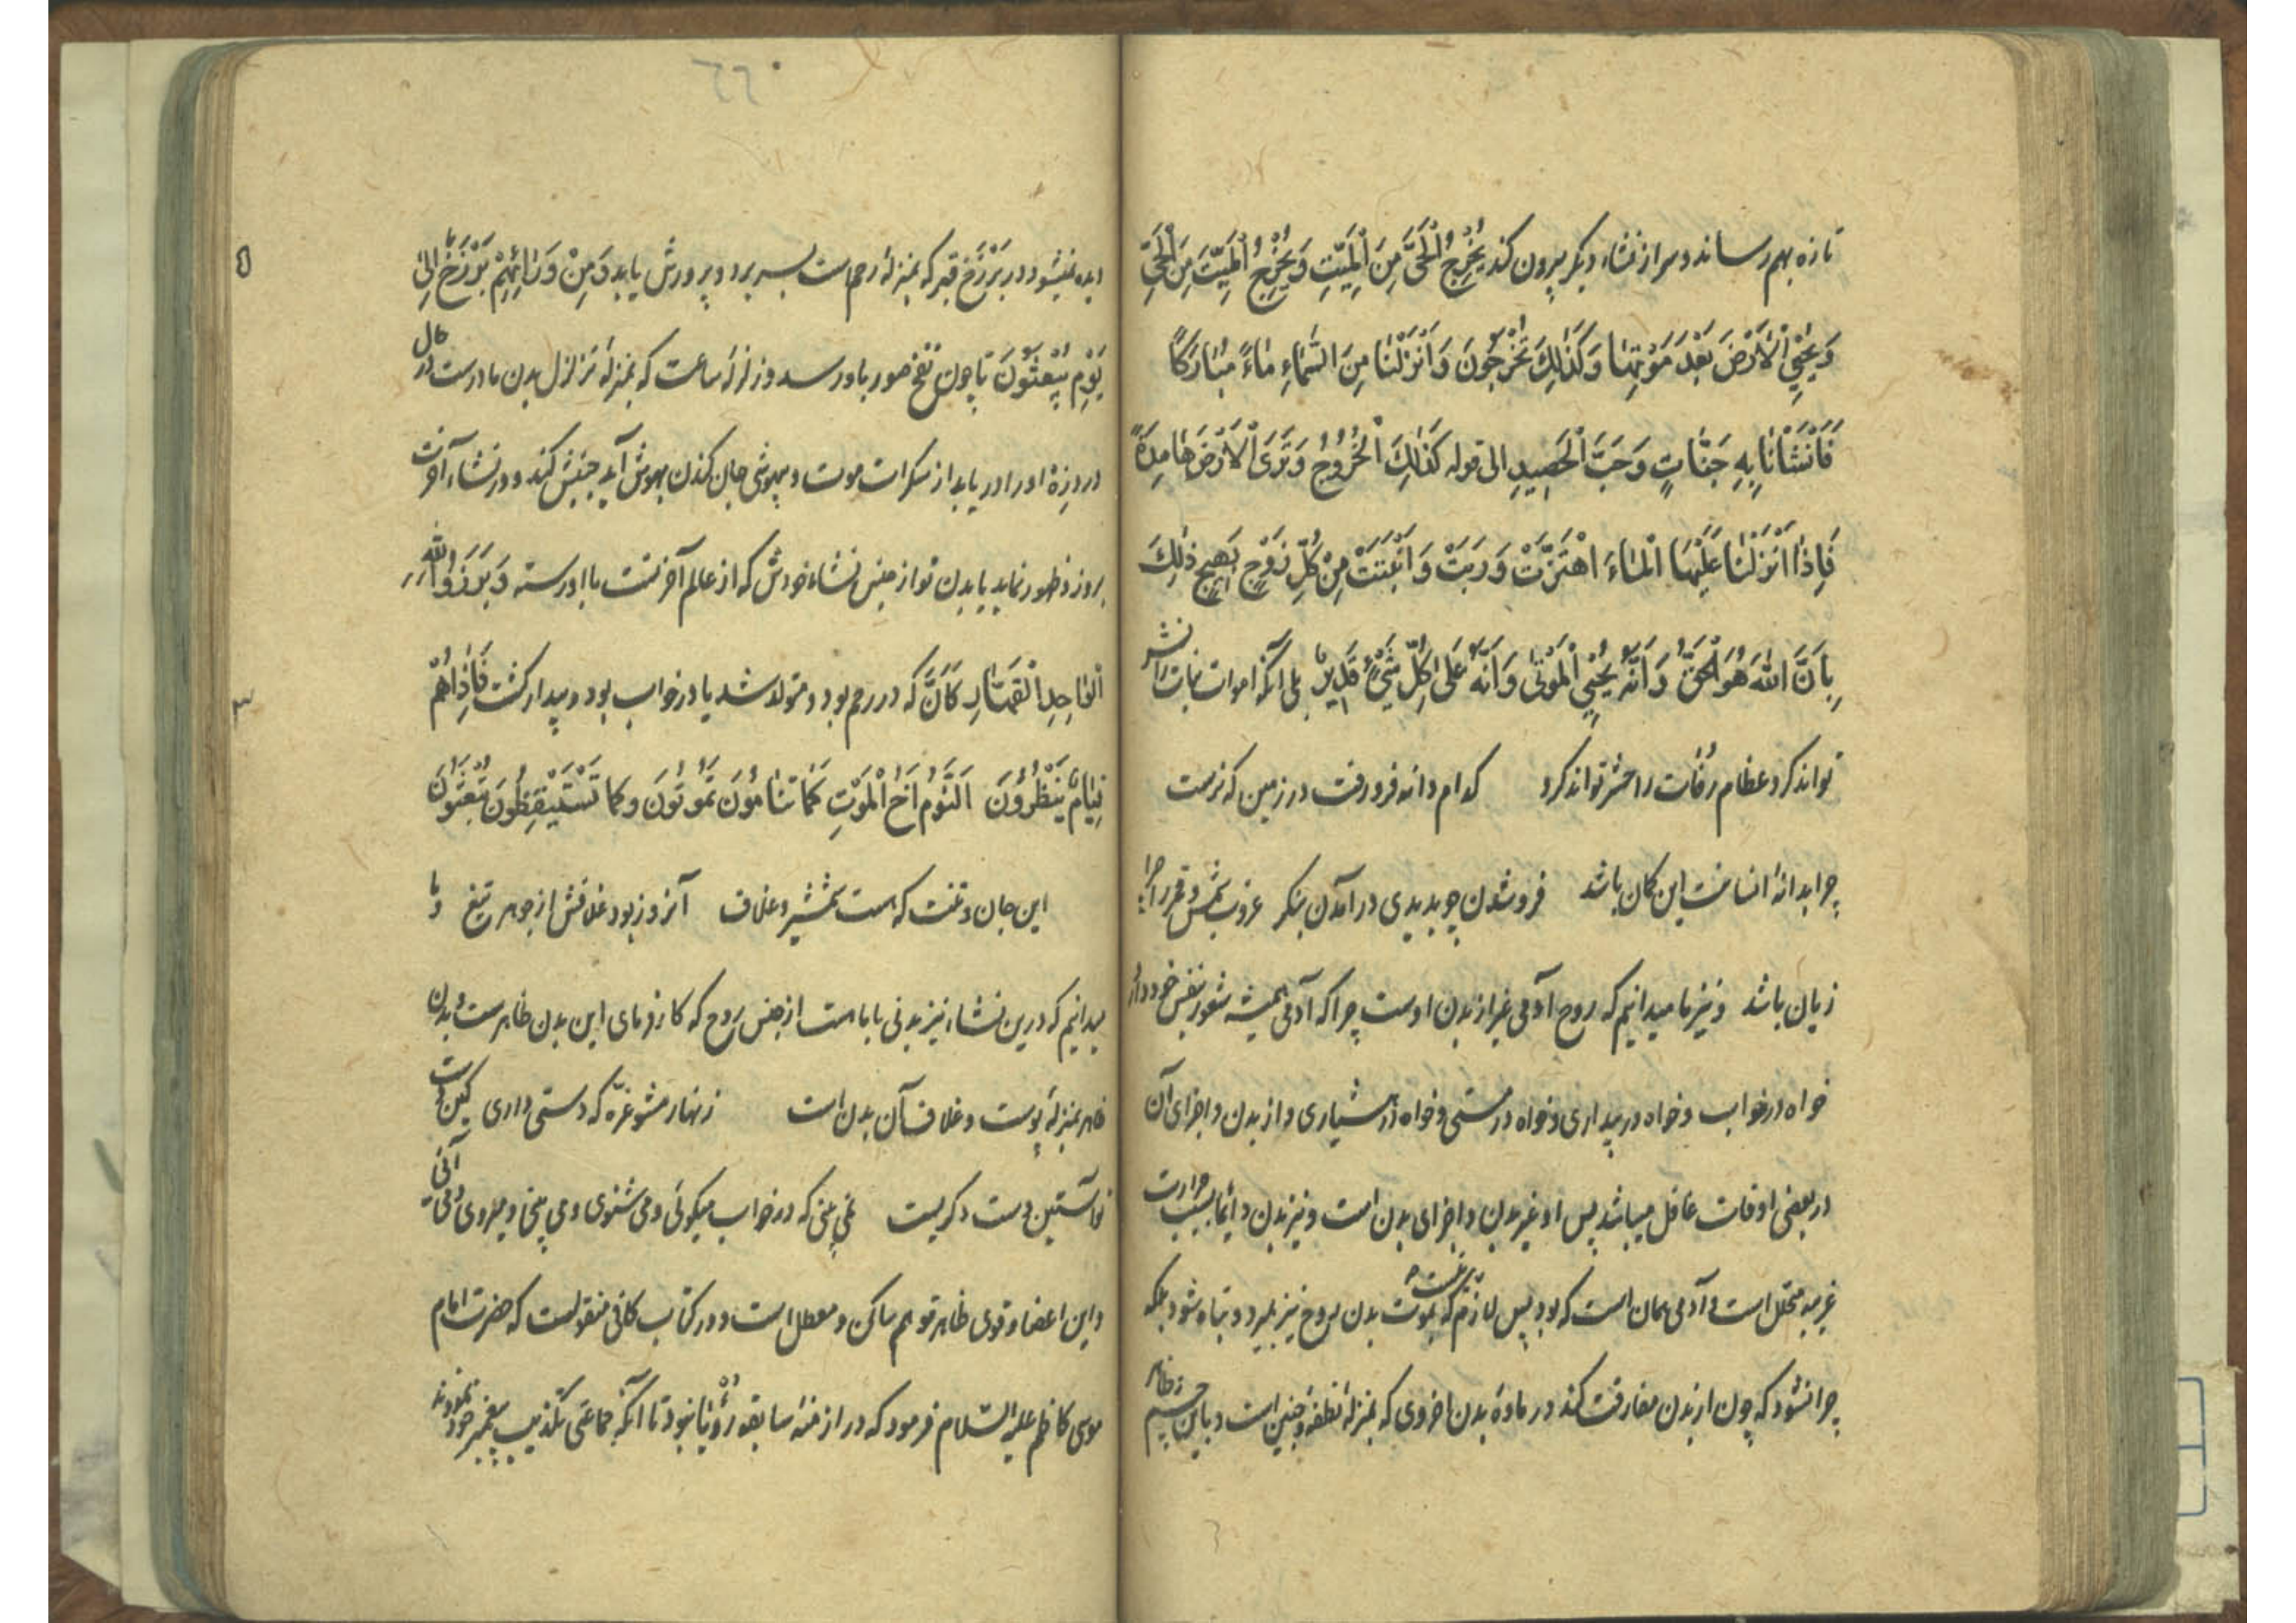 تازه بهم رساند و سر از نشاء دیگر بیرون کند یُخْرِجُ الْحَیَّ مِنَ الْمَیِّتِ وَیُخْرِجُ الْمَیِّتَ مِنَ الْحَیِّ
وَیُحْیِی الْاَرْضَ بَعْدَ مَوْتِهَا وَکَذٰلِکَ تُخْرَجُونَ وَاَنْزَلْنَا مِنَ السَّمَاءِ مَاءً مُبَارَکًا
فَاَنْشَاْنَا بِهِ جَنَّاتٍ وَحَبَّ الْحَصِیدِ الی قوله کَذٰلِکَ الْخُرُوجُ وَتَرَی الْاَرْضَ هَامِدَةً
فَاِذَا اَنْزَلْنَا عَلَیْهَا الْمَاءَ اهْتَزَّتْ وَرَبَتْ وَاَنْبَتَتْ مِنْ کُلِّ زَوْجٍ بَهِیجٍ ذٰلِکَ
بِاَنَّ اللّٰهَ هُوَ الْحَقُّ وَاَنَّهُ یُحْیِی الْمَوْتٰی وَاَنَّهُ عَلٰی کُلِّ شَیْءٍ قَدِیرٌ بلی آنکه اموات نبات را نشر
تواند کرد عظام رُفات را حشر تواند کرد کدام دانه فرو رفت در زمین که نرست
چرا بدانهٔ انسانت این گمان باشد فرو شدن چو بدیدی در آمدن بنگر غروب شمس و قمر را چرا
زیان باشد و نیز ما میدانیم که روح آدمی غیر از بدن اوست چرا که آدمی همیشه شعور بنفس خود دارد
خواه در خواب و خواه در بیداری و خواه در مستی و خواه در هشیاری و از بدن و اجزای آن
در بعضی اوقات غافل میباشد پس او غیر بدن و اجزای بدن است و نیز بدن دائما بسبب حرارت
غریبه متحلل است و آدمی همان است که بود پس لازم نیست که بموت بدن روح نیز بمیرد و تباه شود بلکه
چرا نشود که چون از بدن مفارقت کند در مادهٔ بدن اخروی که بمنزلهٔ نطفه و جنین است و باین چشم ظاهر
٦٦٠
دیده نمیشود در بَرْزَخ قبر که بمنزلهٔ رحم است بسر برد و پرورش یابد وَمِنْ وَرَائِهِمْ بَرْزَخٌ اِلٰی
یَوْمِ یُبْعَثُونَ تا چون نفخ صور باو رسد و زلزلهٔ ساعت که بمنزلهٔ تزلزل بدن مادرست در حال
درد زهٔ او را دریابد از سکرات موت و بیهوشی جان کندن بهوش آید جنبش کند و در نشاء آخرت
بروز و ظهور نماید با بدن نو از جنس نشاء خودش که از عالم آخرتست با او رسته وَبَرَزُوا لِلّٰهِ
الْوَاحِدِ الْقَهَّارِ کَاَنَّ که در رحم بود و متولد شد یا در خواب بود و بیدار گشت فَاِذَا هُمْ
قِیَامٌ یَنْظُرُونَ اَلنَّوْمُ اَخُ الْمَوْتِ کَمَا تَنَامُونَ تَمُوتُونَ وکما تَسْتَیْقِظُونَ تُبْعَثُونَ
این جان و تنت که هست شمشیر و غلاف آنروز بود غلافش از جوهر تیغ و ما
میدانیم که درین نشاء نیز بدنی با ما هست از جنس روح که کارفرمای این بدن ظاهرست و بدن
ظاهر بمنزلهٔ پوست و غلاف آن بدن است زنهار مشو غرّه که دستی داری کین دست
تو آستین دست دگریست نمی بینی که در خواب میگوئی و می شنوی و می بینی و میروی و می آئی
و این اعضا و قوی ظاهر تو هم ساکن و معطل است و در کتاب کافی منقولست که حضرت امام
موسی کاظم علیه السّلام فرمود که در ازمنهٔ سابقه رُؤیا نبود تا آنکه جماعتی تکذیب پیغمبر خود نمودند